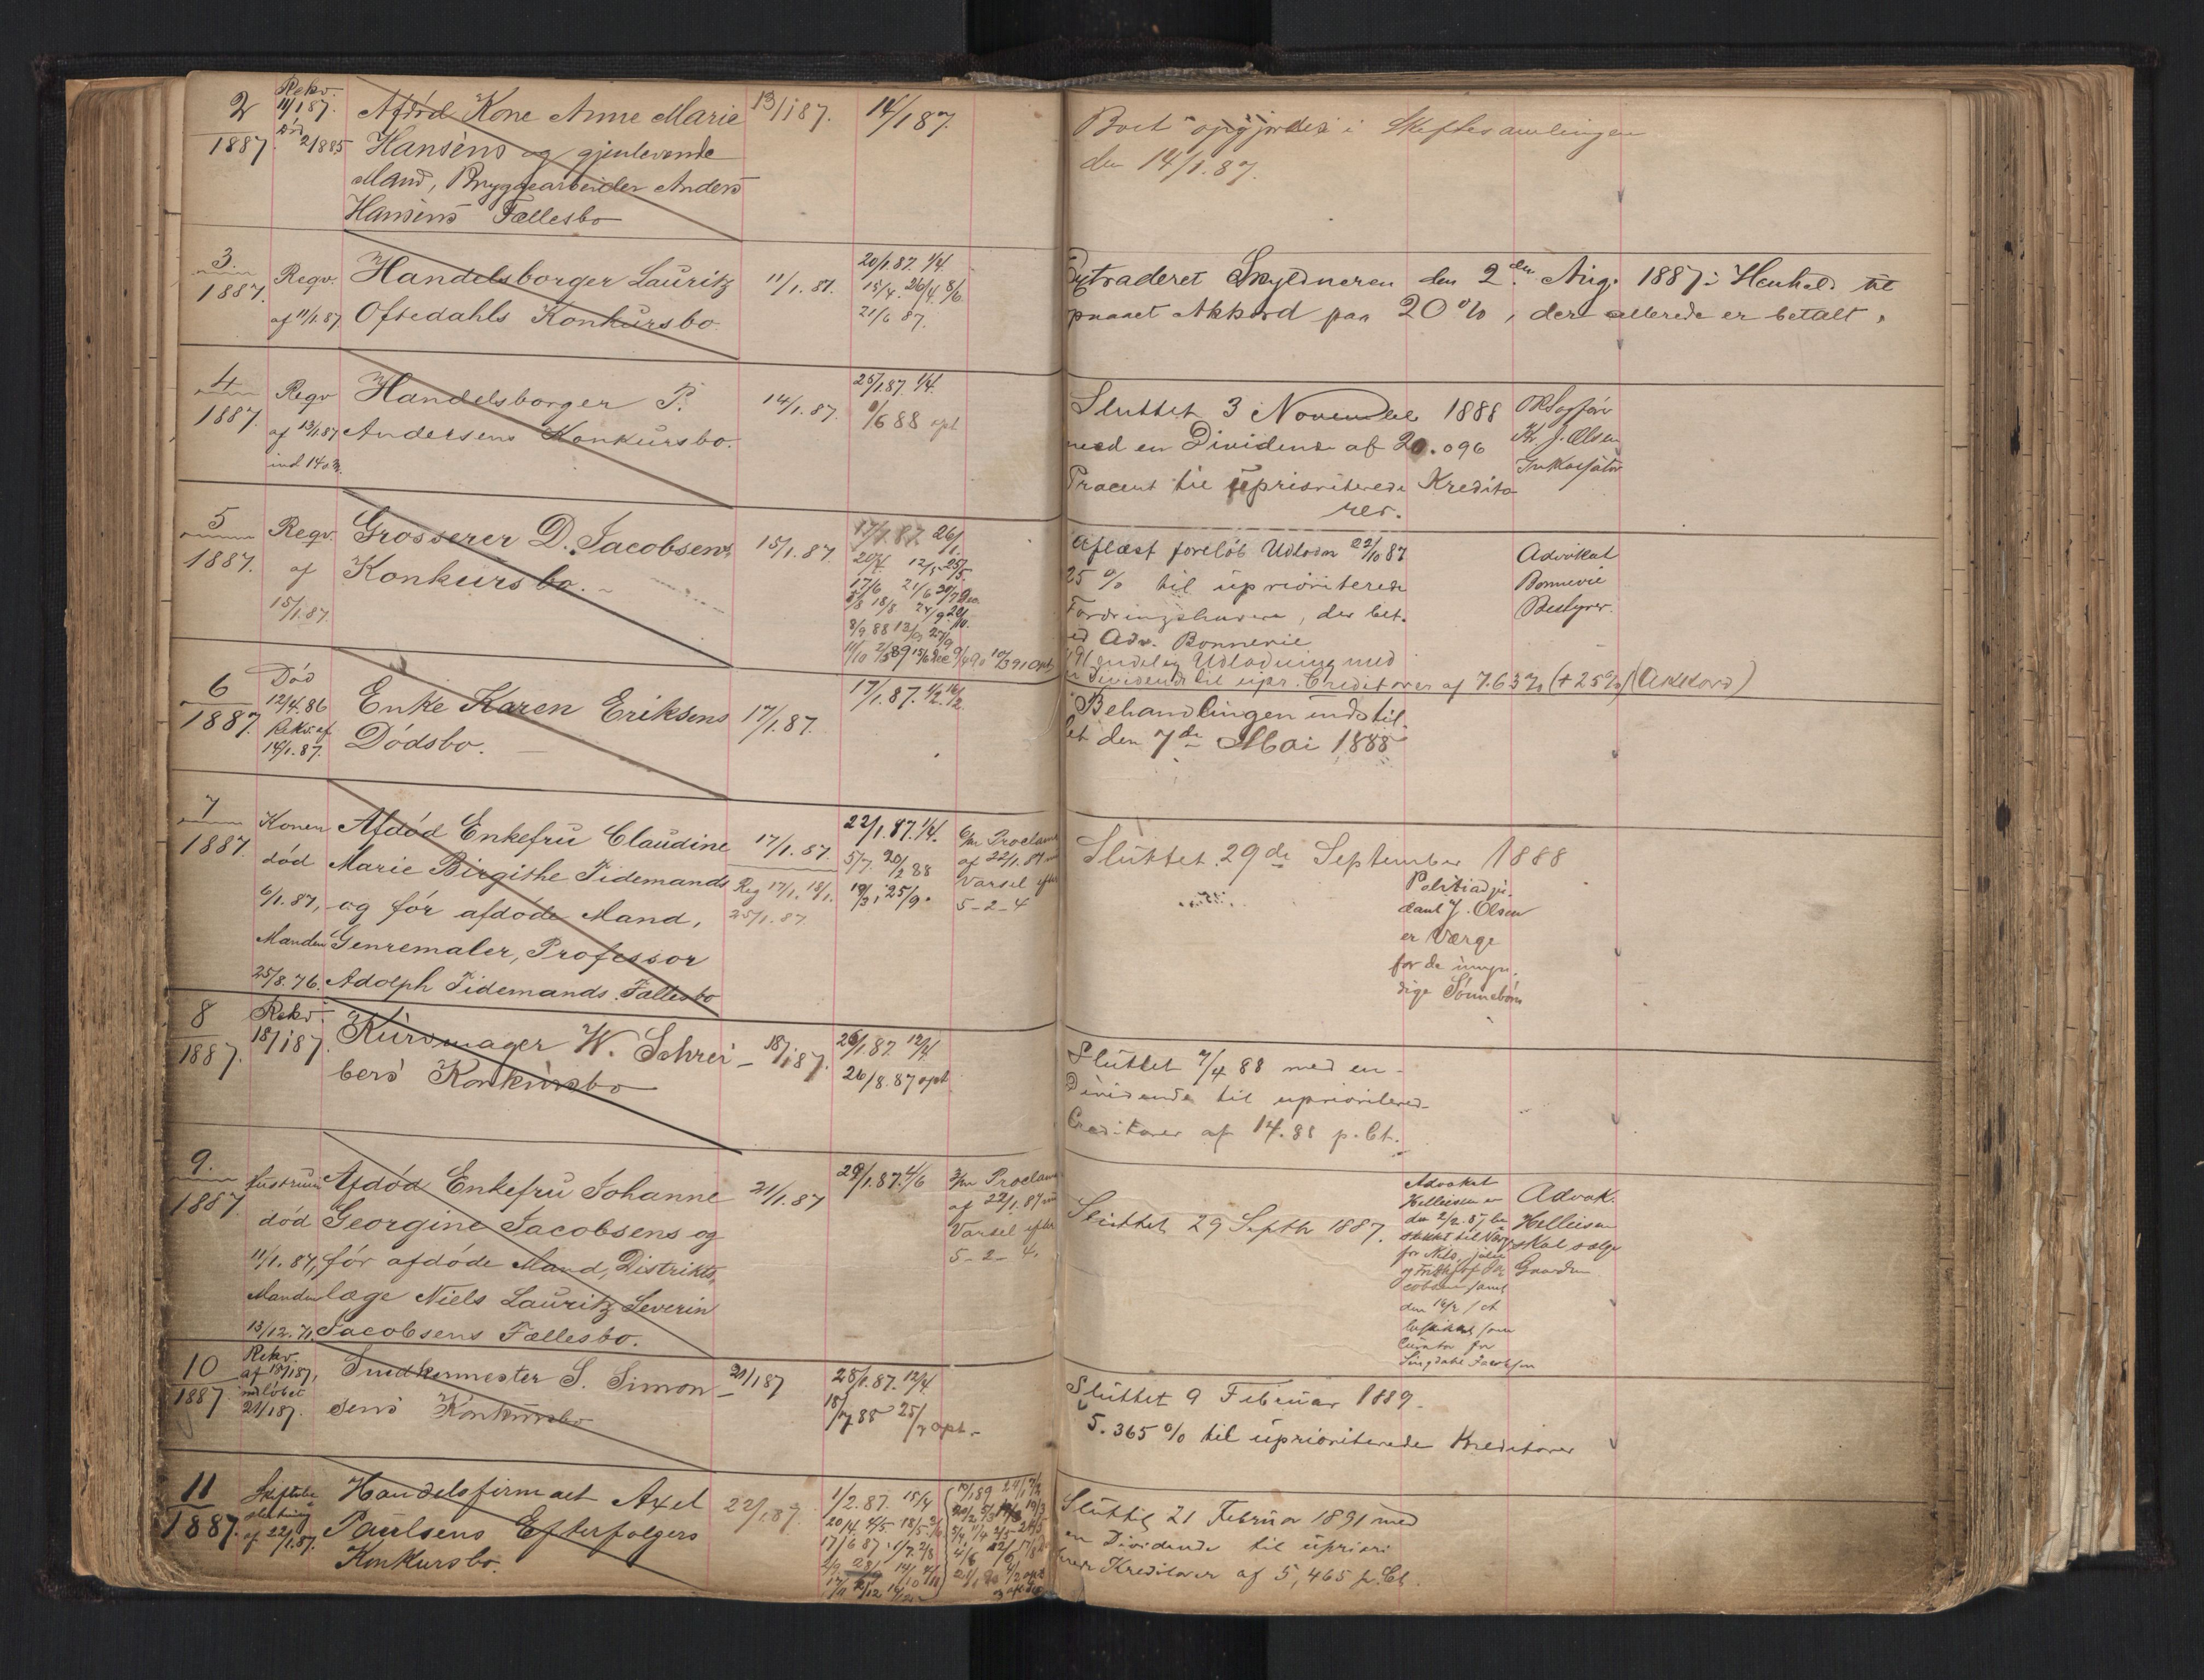 2
1887.
Rekv.
11/1 87.
død 2/1885
Afdød Kone Anne Marie
Hansens og gjenlevende
Mand, Bryggearbeider Anders
Hansens Fællesbo
13/1 87.
14/1 87.
Boet opgjordes i Skiftesamlingen
den 14/1.87.
3.
1887.
Reqv.
af 11/1.87.
Handelsborger Lauritz
Oftedahls Konkursbo.
11/1.87.
20/1.87. 1/4.
15/4. 26/4. 8/6.
21/6 87.
Extraderet Skyldneren den 2den Aug. 1887 i Henhold til
opnaaet Akkord paa 20 %, der allerede er betalt.
4
1887.
Reqv
af 13/1.87
ind 14 s.M.
Handelsborger P.
Andersens Konkursbo.
14/1.87.
25/1.87. 1/4.
/6 88 opt
Sluttet 3 November 1888
med en Dividende af 20.096
Procent til uprioriterede Kredito
rer.
ORSagfører
Kr. J. Olsen
Inkassator
5
1887.
Reqv.
af
15/1.87.
Grosserer D. Jacobsens
Konkursbo.
15/1.87.
17/1.87. 26/1.
20/4. 12/5 25/5.
17/6 21/6 30/7
18/8 24/9
8/9 88
Aflæst foreløb Udlodn 22/10 87
25 % til uprioriterede
Fordringshavere, der bet.
ved Adv. Bonnevie
endelig Udlodning med
Dividende til upr. Creditorer af 7.63 % (+ 25 %) (Akkord)
Advokat
Bonnevie
Bestyrer.
6
1887.
Død
12/4.86
Rekv. af
14/1.87.
Enke Karen Eriksens
Dödsbo.
17/1.87.
17/1.87. 1/2. 16/2.
Behandlingen indstil
let den 7de Mai 1888
7
1887.
Konen
død
6/1.87,
Manden
25/8.76.
Afdød Enkefru Claudine
Marie Birgithe Tidemands
og før afdøde Mand,
Genremaler, Professor
Adolph Tidemands Fællesbo
17/1.87.
Reg 17/1. 18/1.
25/1.87
22/1.87. 1/4.
5/7. 20/2 88
19/3, 25/9.
6/m Proclama
af 22/1.87 m
Varsel efter
5-2-4
Sluttet 29de September 1888
Politiadju
dant J. Olsen
er Værge
for de umyn
dige Sønnebørn
8
1887.
Rekv.
18/1 87.
Kürsmager W. Schrei
bers Konkursbo
18/1 87.
26/1.87. 12/4
26/8.87 opt
Sluttet 7/4 88 med en
Dividende til uprioritered
Creditorer af 14.88 p.Ct.
9.
1887.
Hustruen
død
11/1.87,
Manden
13/12.71.
Afdød Enkefru Johanne
Georgine Jacobsens og
før afdøde Mand, Distrikts
læge Niels Lauritz Severin
Jacobsens Fællesbo.
21/1.87
29/1.87. 4/6
3/m Proclama
af 22/1.87 m
Varsel efter
5-2-4.
Sluttet 29 Septbr 1887.
Advokat
Helliesen er
den 2/2.87 be
skikket til Værge
for Nils, Julie
og Fridtjof Ja
cobsen samt
den 16/2 s A
beskikket som
Curator for
Advok.
Helliesen
skal sælge
Gaarden
10
1887
Rekv.
af 18/1 87,
indløbet
21/1 87.
Snedkermester S. Simon
sens Konkursbo
20/1 87
28/1.87. 12/4
18/7 88 25/ opt.
Sluttet 9 Februar 1889.
5.365 % til uprioriterede Kreditorer
11
1887.
Skiftebe
slutning
af 22/1.87.
Handelsfirmaet Axel
Paulsens Efterfølgers
Konkursbo.
22/1.87.
1/2.87. 15/4
17/6 87
Sluttet 21 Februar 1891 med
en Dividende til upriori
terede Kreditorer af 5,465 p.Ct.